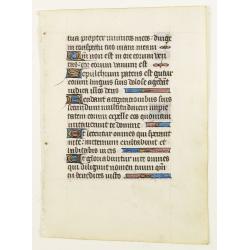 tua propter inimicos meos dirige
in conspectu tuo viam meam
Qm non est in ore eorum veri
tas cor eorum vanum est
Sepulchrum patens est guttur
eorum linguis suis dolose agebāt
iudica illos deus
Decidant a cogitationibus suis
secundum multitudinem impie
tatum eorum expelle eos quoniam
irritaverunt te domine
Et letentur omnes qui sperant
in te in eternum exultabunt et
habitabis in eis
Et gloriabuntur in te omnes
qui diligunt nomen tuum qm̄
tu benedices iusto